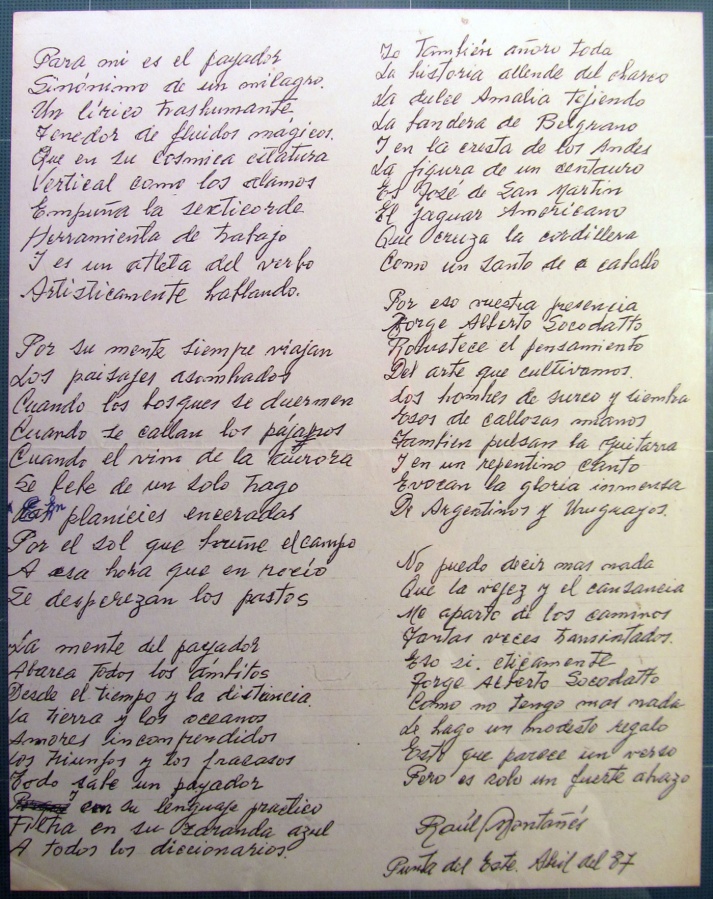 Para mi es el payador
Sinónimo de un milagro.
Un lírico trashumante
Tenedor de fluidos mágicos.
Que en su cósmica estatura
Vertical como los alamos
Empuña la sexticorde
Herramienta de trabajo
Y es un atleta del verbo
Artisticamente hablando.
Por su mente siempre viajan
Los paisajes asombrados
Cuando los bosques se duermen
Cuando se callan los pájaros
Cuando el vino de la aurora
Se bebe de un solo trago
En planicies enceradas
Por el sol que bruñe el campo
A esa hora que en rocío
Se desperezan los pastos
La mente del payador
Abarca todos los ámbitos
Desde el tiempo y la distancia
La tierra y los oceanos
Amores incomprendidos
Los triunfos y los fracasos
Todo sabe un payador
Y con su lenguaje practico
Filtra en su zaranda azul
A todos los diccionarios.
Yo también añoro toda
La historia allende del charco
La dulce Amalia tejiendo
La bandera de Belgrano
Y en la cresta de los Andes
La figura de un centauro
Es José de San Martin
El jaguar Americano
Que cruza la cordillera
Como un santo de a caballo
Por eso vuestra presencia
Jorge Alberto Socodatto
Robustece el pensamiento
Del arte que cultivamos.
Los hombres de surco y siembra
Esos de callosas manos
Tambien pulsan la guitarra
Y en un repentino canto
Evocan la gloria inmensa
De Argentinos y Uruguayos.
No puedo decir mas nada
Que la vejez y el cansancio
Me aparto de los caminos
Tantas veces transitados.
Eso si. eticamente
Jorge Alberto Socodatto
Como no tengo mas nada
Le hago un modesto regalo
Este que parece un verso
Pero es solo un fuerte abrazo
Raúl Montañés
Punta del Este. Abril del 87